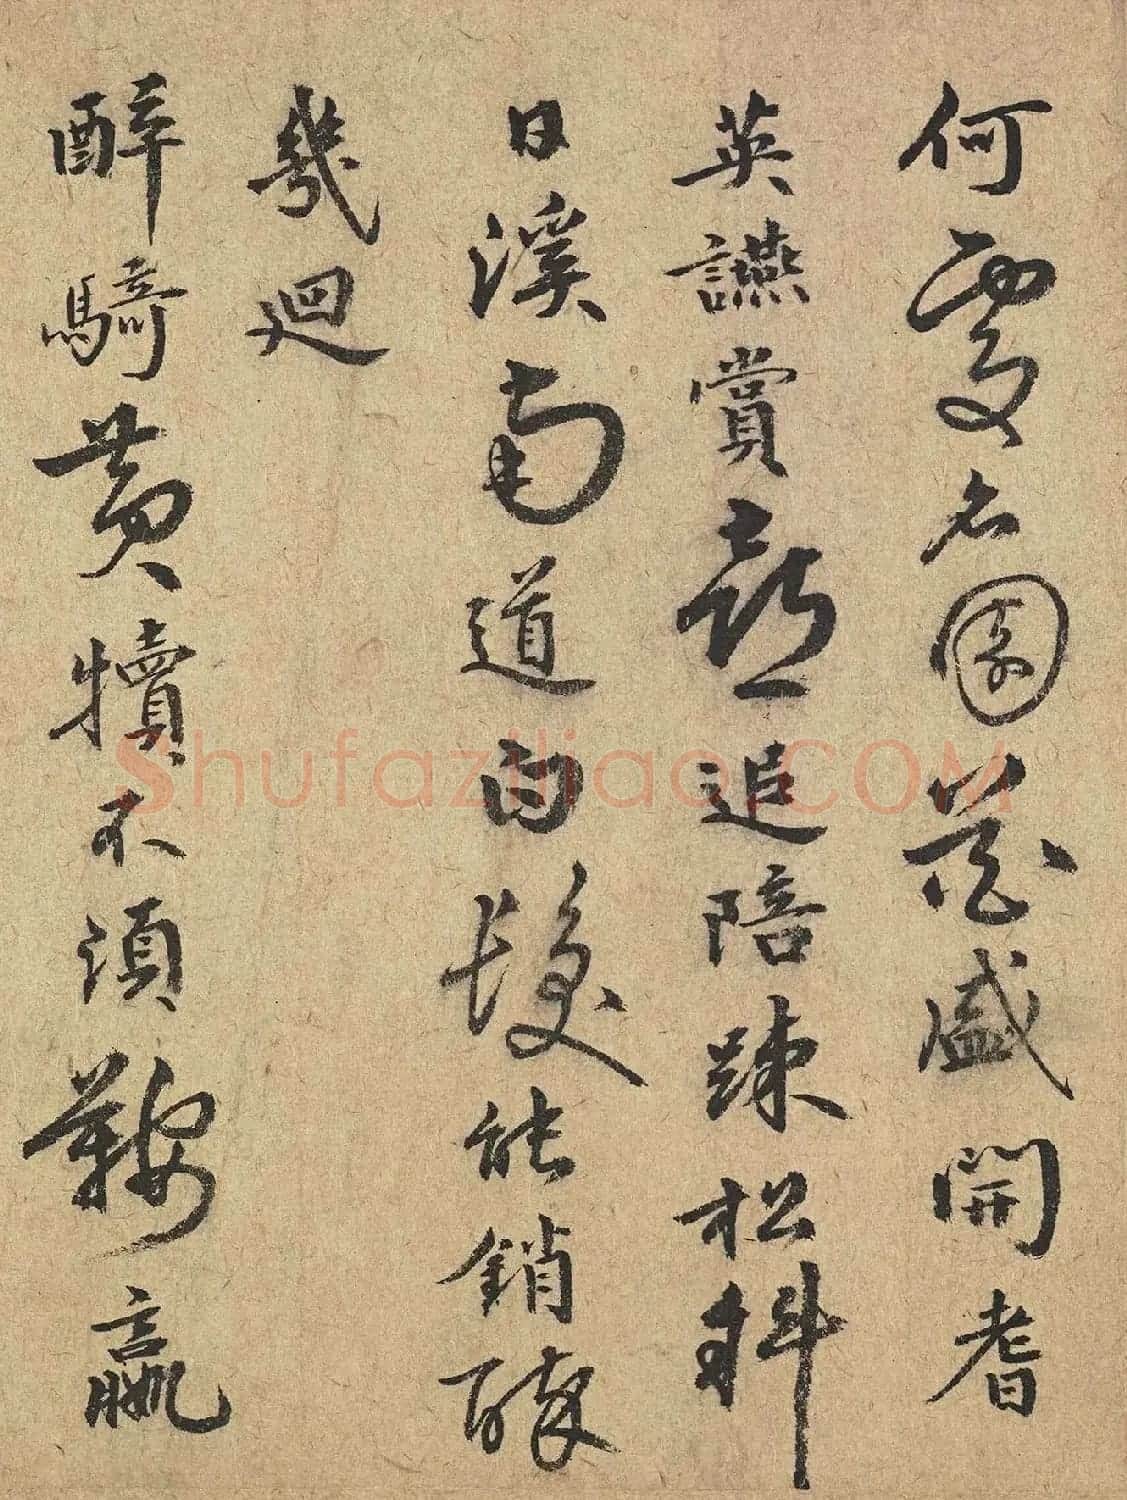 何處名園花盛開耆
英讌賞喜追陪疎松斜
日溪南道白髮能銷醉
幾迴
醉騎黃犢不須鞍羸
Shufaziliao.COM